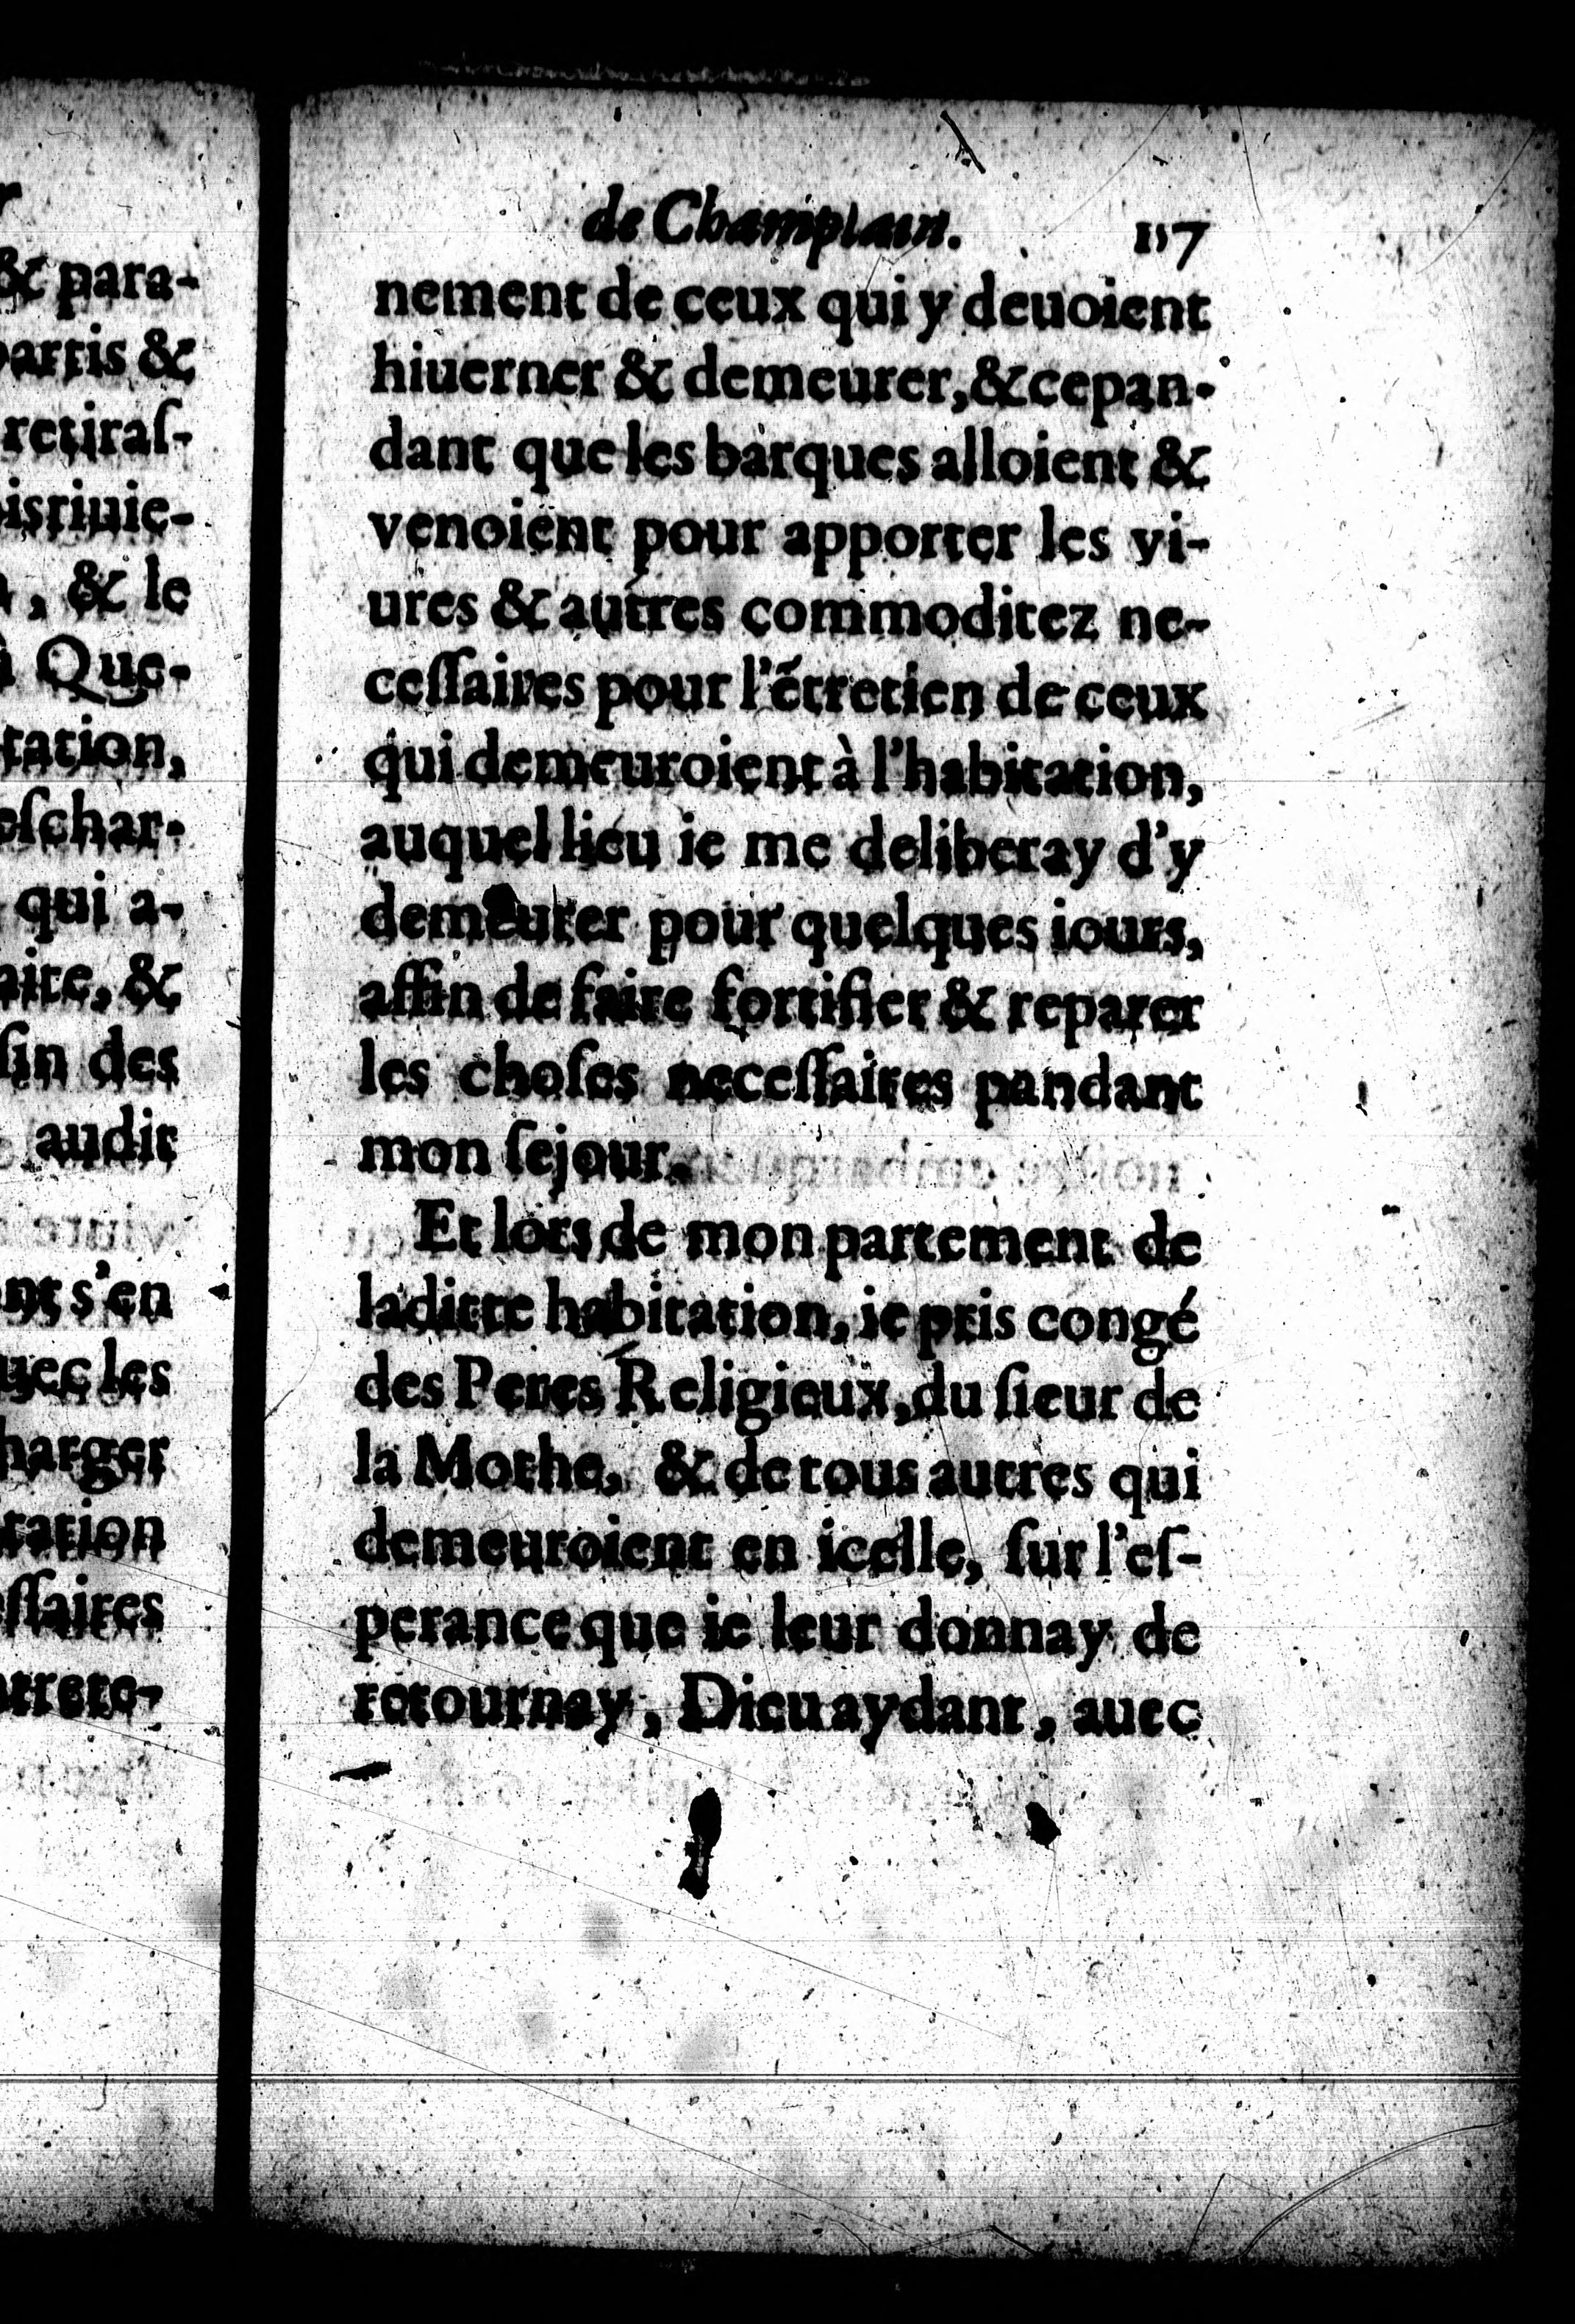 & para-
artis &
retiraſ-
isriuie-
, & le
à Que-
tation,
eſchar-
qui a-
aire, &
ſin des
audit
nt s'en
uec les
harger
tation
eſſaires
trete-
de Champlain. 117
nement de ceux qui y deuoient
hiuerner & demeurer, & cepan-
dant que les barques alloient &
venoient pour apporter les vi-
ures & autres commoditez ne-
ceſſaires pour l'étretien de ceux
qui demeuroient à l'habitation,
auquel lieu ie me deliberay d'y
demeurer pour quelques iours,
affin de faire fortifier & reparer
les choſes neceſſaires pandant
mon ſejour.
Et lors de mon partement de
laditte habitation, ie pris congé
des Peres Religieux, du ſieur de
la Mothe, & de tous autres qui
demeuroient en icelle, ſur l'eſ-
perance que ie leur donnay de
retournay, Dieu aydant, auec